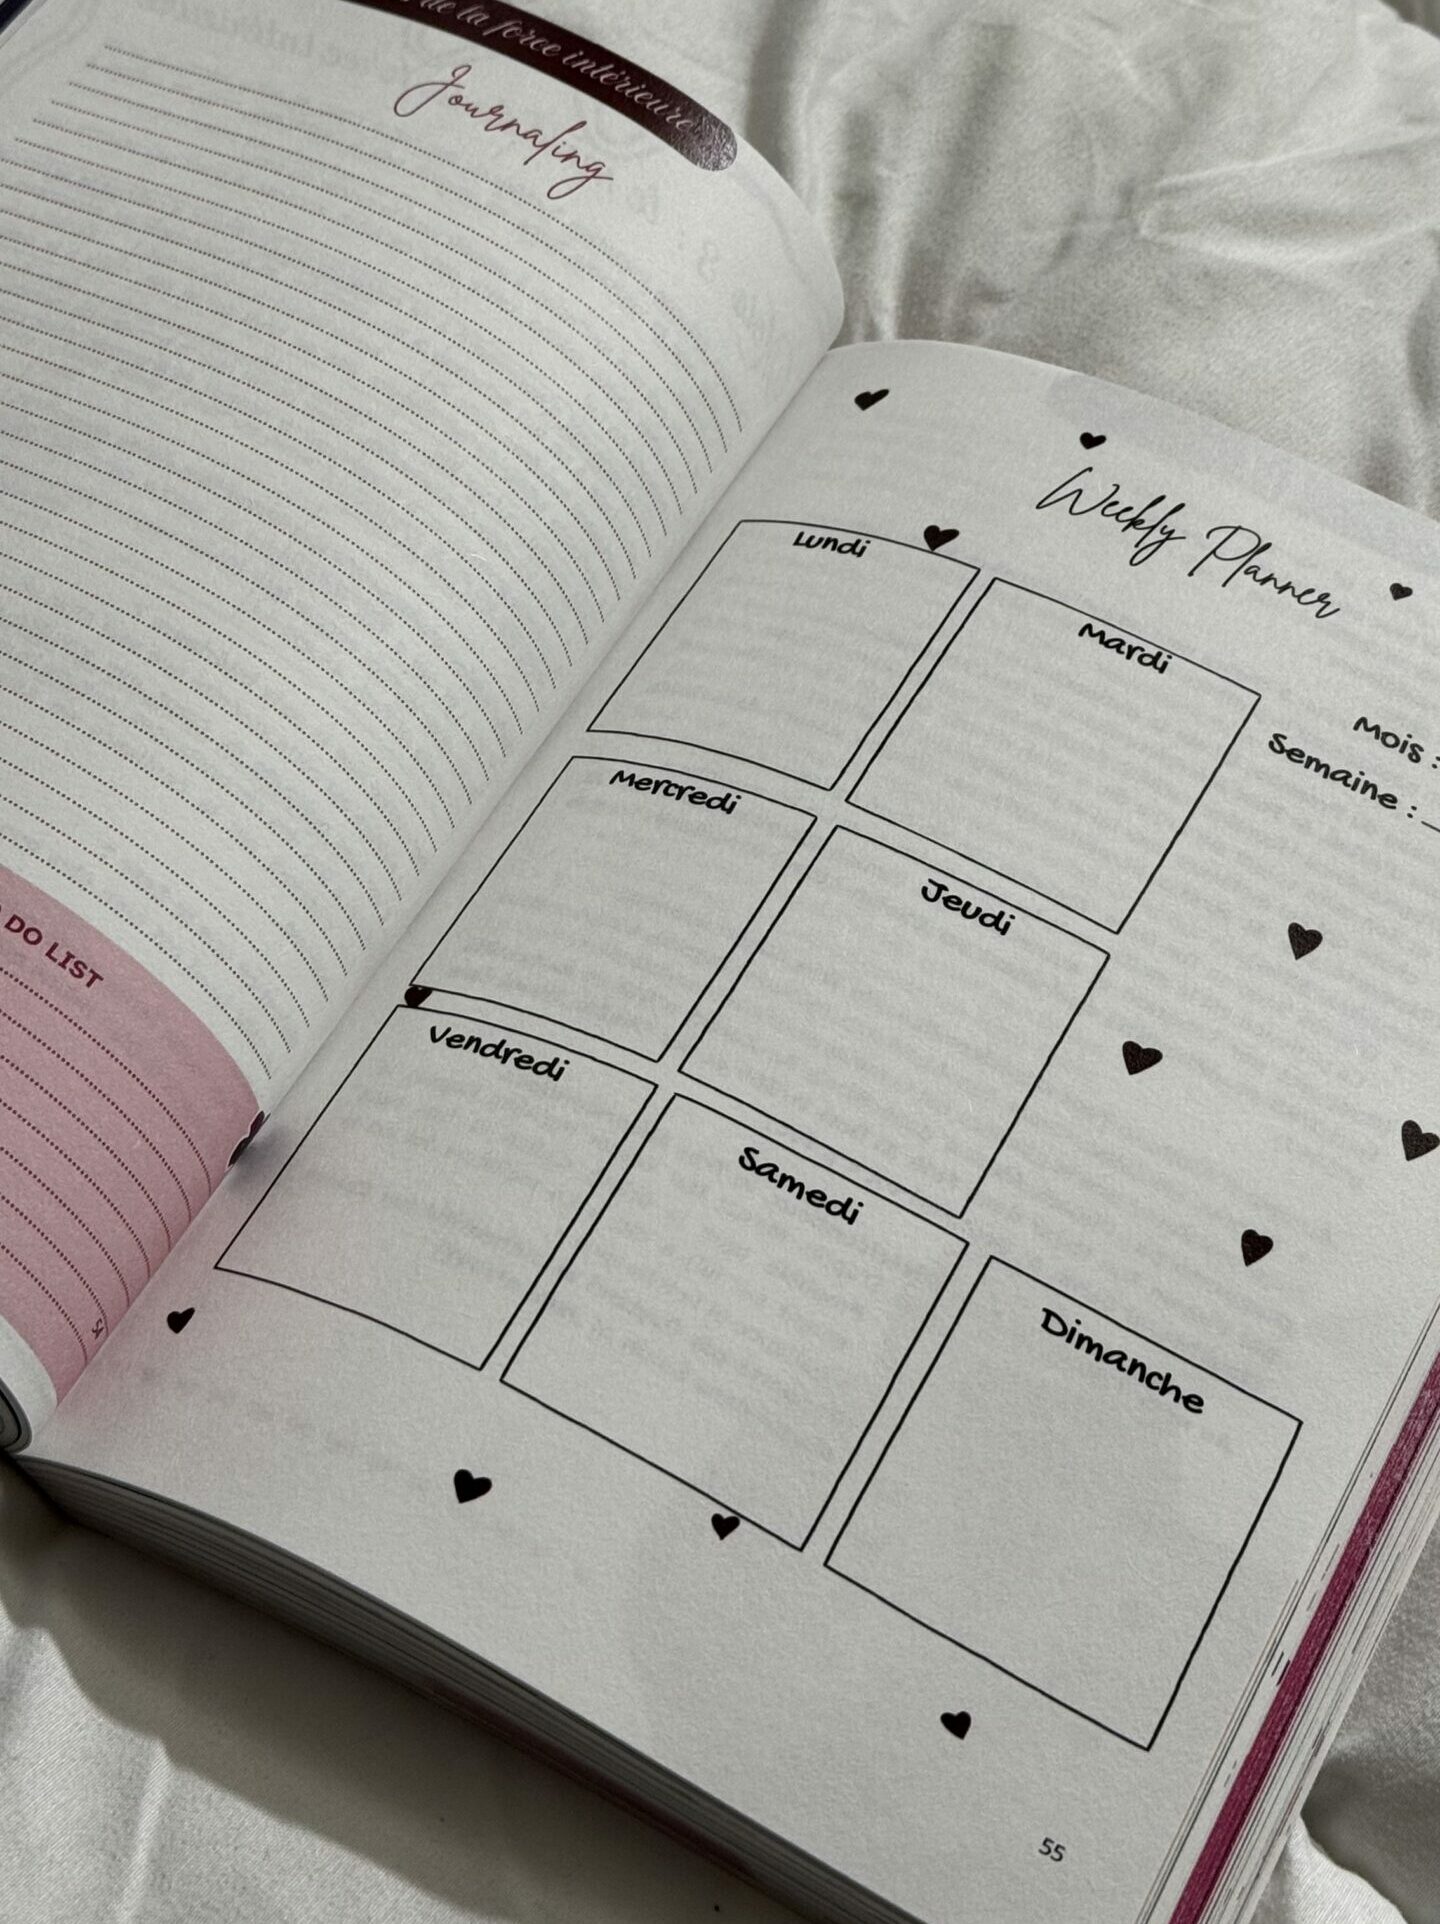 de la force intérieure
Journaling
DO LIST
Weekly Planner
Mois :
Semaine :
Lundi
Mardi
Mercredi
Jeudi
Vendredi
Samedi
Dimanche
55